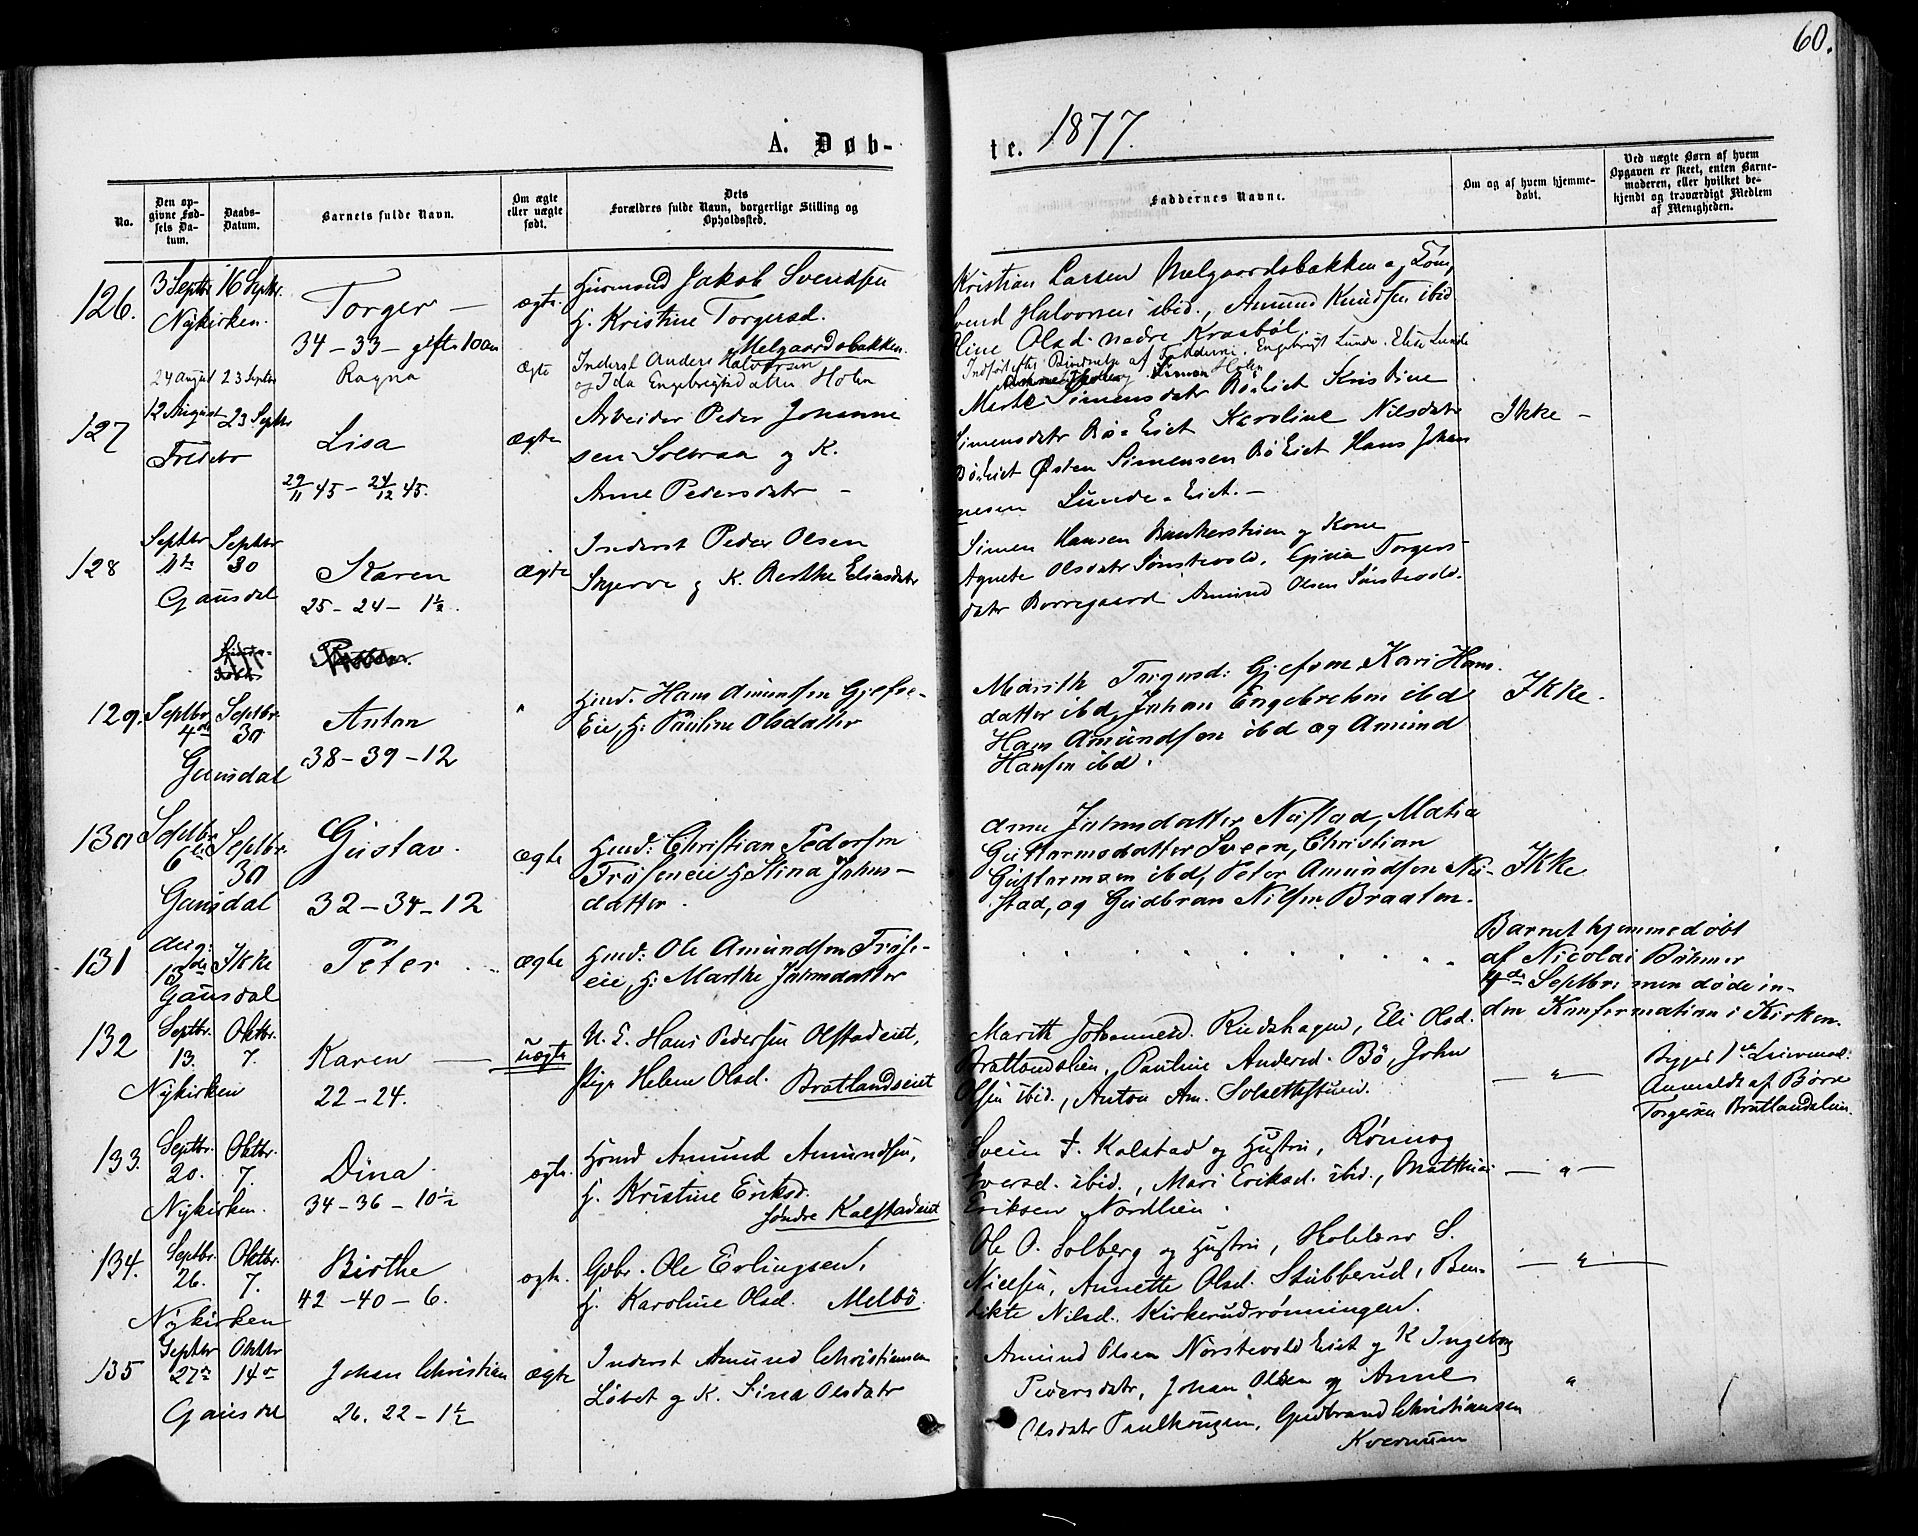 60.
A. Døb-
te. 1877.
No.
Den op-
givne Fød-
sels Da-
tum.
Daabs-
Datum.
Barnets fulde Navn.
Om ægte
eller uægte
født.
Dets
Forældres fulde Navn, borgerlige Stilling og
Opholdssted.
Faddernes Navne.
Om og af hvem hjemme-
døbt.
Ved uægte Børn af hvem
Opgaven er skeet, enten Barne-
moderen, eller hvilket be-
kjendt og troværdigt Medlem
af Menigheden.
126.
3 Septbr.
Nykirken.
16 Septbr.
Torger
34 - 33 - gifte 10 aar
ægte
Husmand Jakob Svendsen
H. Kristine Torgersd.
Melgaardsbakken.
Kristian Larsen Melgaardsbakken og Søn,
Svend Halvorsen ibid., Amund Knudsen ibid
Oline Olsd. nedre Kraabøl
24 August
23 Septbr
Ragna
ægte
Inderst Anders Halvorsen
og Ida Engebrigtsdatter Holen
Indført efter af Fadderne. Engebrigt Lunde. Elise Lunde
Simen Holen
127
12 August
Fredebo
23 Septbr
Lisa
29/11 45 - 24/12 45.
ægte
Arbeider Peder Johanne
sen Solbraa og K.
Anne Pedersdatr -
Marte Simensdatr Bø-Eiet Kristine
Simensdatr Bø-Eiet Karoline Nilsdatr
Bø-Eiet Østen Simensen Bø Eiet Hans Johan
nesen Lunde-Eiet. -
Ikke -
128
Septbr
11te
Gausdal
Septbr
30
Karen
25 - 24 - 1½.
ægte
Inderst Peder Olsen
Skjerve og K. Berthe Eliasdatr
Simen Hansen Bankerstuen og Kone
Agnete Olsdatr Sønstevold, Gina Torgers-
datr Borregaard Amund Olsen Sønstevold.
129.
Septbr
4de
Gausdal
Septbr.
30
Anton
38 - 39 - 12
"
Hmd. Hans Amundsen Gjefse-
Eie, H: Pauline Olsdatter
Marith Torgersd: Gjefsen, Kari Hans-
datter ibd, Johan Engebretsen ibd
Hans Amundsen ibd og Amund
Hansen ibd.
Ikke.
130
Septbr.
6te
Gausdal
Septbr.
30
Gustav.
32 - 34 - 12
ægte
Hmd: Christian Pedersen
Frøseneie H Stina Johns-
datter.
Anne Johnsdatter Nustad, Mathea
Guttormsdatter Sveen, Christian
Guttormsen ibd, Peter Amundsen Nu-
stad, og Gudbran Nilsen Braaten.
Ikke
131
Aug:
13de
Gausdal
Ikke
Peter
ægte
Hmd: Ole Amundsen Frøse-
eie, H: Marthe Johnsdatter
Barnet hjemmedøbt
af Nicolai Bøhmer
4de Septbr: men døde in-
den Konfermation i Kirken.
132
Septbr.
13.
Nykirken
Oktbr.
7.
Karen
22 - 24.
uægte
U. E. Hans Pedersen Olstadeiet,
Pige Helene Olsd. Bratlandseiet
Marith Johannesd. Rudshagen, Eli Olsd.
Bratlandslien, Pauline Andersd. Bø, John
Olsen ibid., Anton Am. Solsethstuen.
— " —
Begges 1ste Leiermaal.
Anmeldt af Børre
Torgersen Bratlandslien.
133.
Septbr.
20.
Nykirken.
Oktbr.
7.
Dina
34 - 36 - 10½
ægte.
Hsmd Amund Amundsen,
H. Kristine Eriksd.
søndre Kalstadeiet
Svein I. Kalstad og Hustru, Rønnog
Iversd. ibid., Mari Eriksd. ibid., Mathias
Eriksen Nordlien.
— " —
134.
Septbr.
26.
Nykirken
Oktbr.
7.
Birthe
42 - 40 - 6.
ægte.
Gbr. Ole Erlingsen,
H. Karoline Olsd. Melbø.
Ole O. Solberg og Hustru, S.
Nielsen, Annette Olsd. Stubberud, Ben-
dikte Nilsd. Kirkerudrønningen.
— " —
135
Septbr
27de
Gausdal
Oktbr
14de
Johan Christian
26. 22 - 1½
ægte
Inderst Amund Christiansen
Løbet og K. Sina Olsdatr
Amund Olsen Nørstevold Eiet og K Ingeborg
Pedersdatr, Johan Olsen og Anne
Olsdatr Paulhaugen, Gudbrand Christiansen
Kvernuen
"